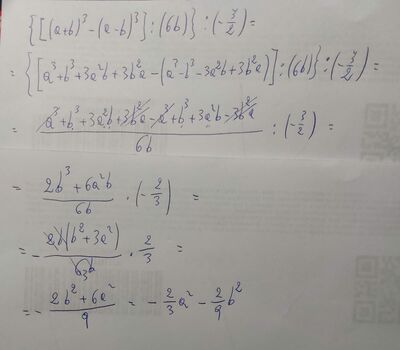 {[(a+b)³-(a-b)³]:(6b)}:(-3/2)=
={[a³+b³+3a²b+3b²a-(a³-b³-3a²b+3b²a)]:(6b)}:(-3/2)=
=(a³+b³+3a²b+3b²a-a³+b³+3a²b-3b²a)/6b:(-3/2)=
=(2b³+6a²b)/6b·(-2/3)=
=-2b(b²+3a²)/6₃b·2/3=
=-(2b²+6a²)/9=-2/3a²-2/9b²